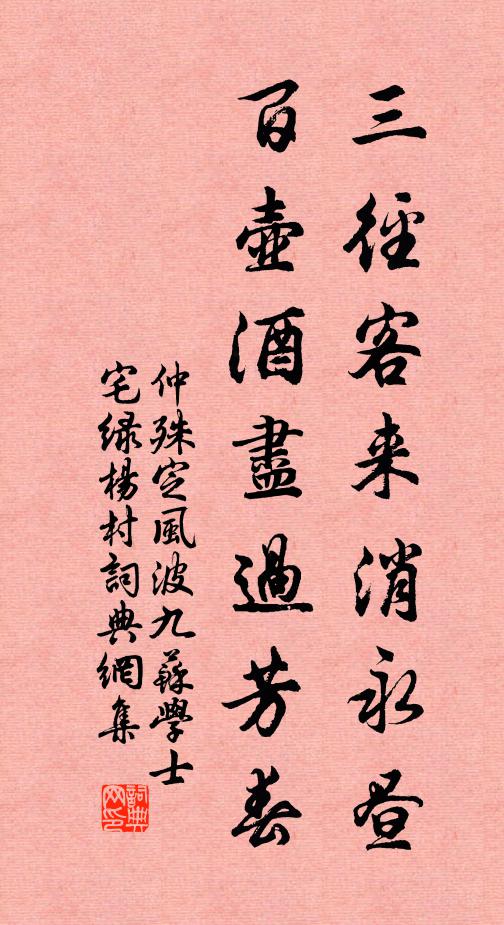 三徑客来消永晝
百壺酒盡過芳春
仲殊定風波九蘇學士
宅緑楊村詞典網集
詞典網印